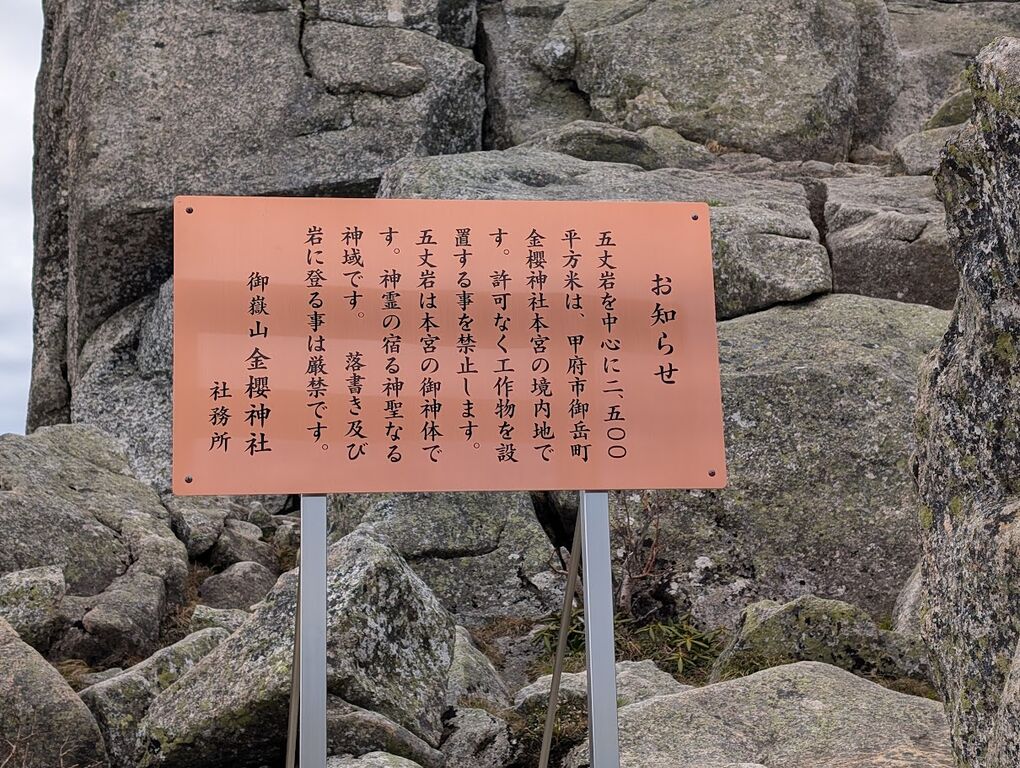 お知らせ
五丈岩を中心に二、五〇〇
平方米は、甲府市御岳町
金櫻神社本宮の境内地で
す。許可なく工作物を設
置する事を禁止します。
五丈岩は本宮の御神体で
す。神霊の宿る神聖なる
神域です。落書き及び
岩に登る事は厳禁です。
御嶽山金櫻神社
社務所